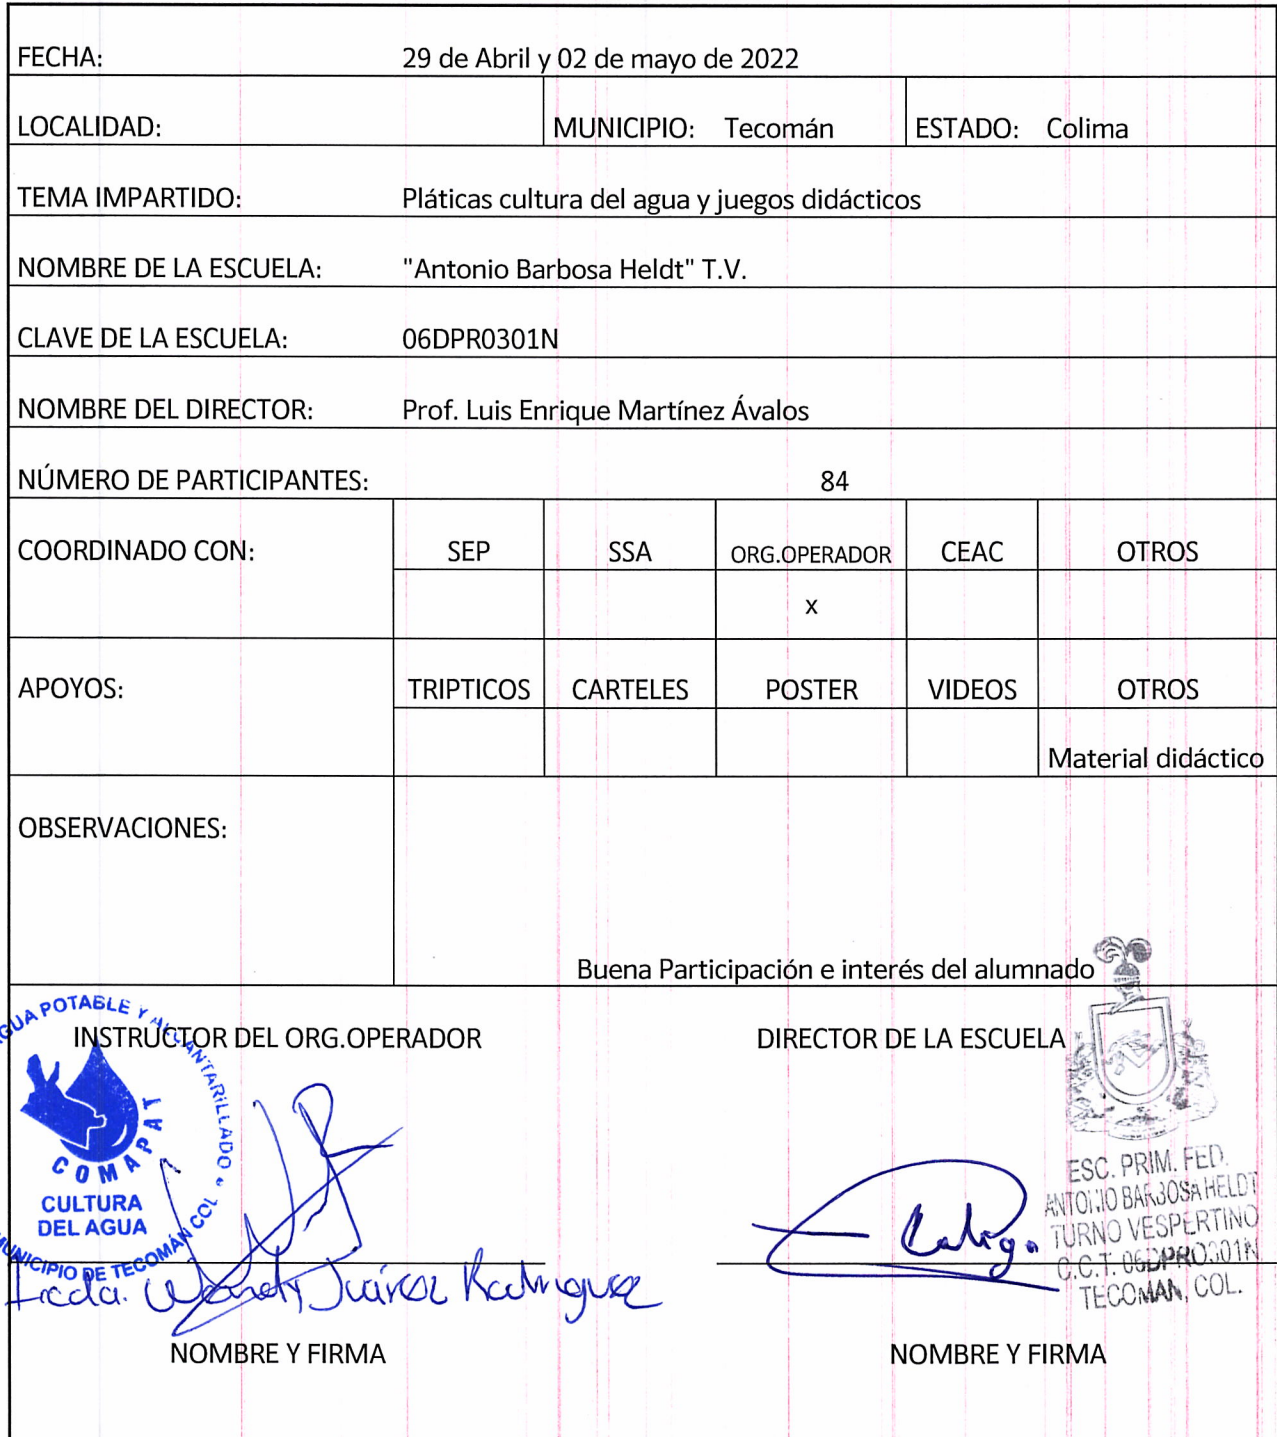 FECHA: 29 de Abril y 02 de mayo de 2022
LOCALIDAD: MUNICIPIO: Tecomán ESTADO: Colima
TEMA IMPARTIDO: Pláticas cultura del agua y juegos didácticos
NOMBRE DE LA ESCUELA: "Antonio Barbosa Heldt" T.V.
CLAVE DE LA ESCUELA: 06DPR0301N
NOMBRE DEL DIRECTOR: Prof. Luis Enrique Martínez Ávalos
NÚMERO DE PARTICIPANTES: 84
COORDINADO CON: SEP SSA ORG.OPERADOR CEAC OTROS
x
APOYOS: TRIPTICOS CARTELES POSTER VIDEOS OTROS
Material didáctico
OBSERVACIONES:
Buena Participación e interés del alumnado
INSTRUCTOR DEL ORG.OPERADOR DIRECTOR DE LA ESCUELA
AGUA POTABLE Y ALCANTARILLADO
COMAPAT
CULTURA
DEL AGUA
MUNICIPIO DE TECOMÁN COL
ESC. PRIM. FED.
ANTONIO BARBOSA HELDT
TURNO VESPERTINO
C.C.T. 06DPRO301N
TECOMAN, COL.
Licda. Wendy Juárez Rodriguez
NOMBRE Y FIRMA NOMBRE Y FIRMA